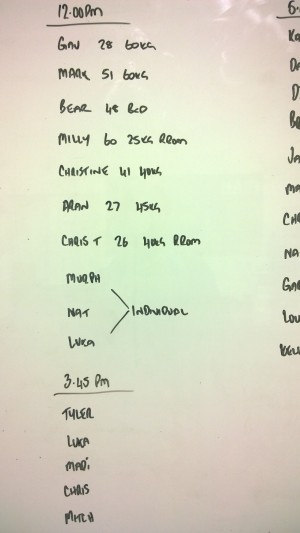 12.00pm
GAV 28 60KG
MARK 51 60KG
BEAR 48 RXD
MILLY 60 25KG RROM
CHRISTINE 41 40KG
ARAN 27 45KG
CHRIS T 26 40KG RROM
MURPH
NAT INDIVIDUAL
LUKA
3.45 pm
TYLER
LUKA
MADI
CHRIS
MITCH